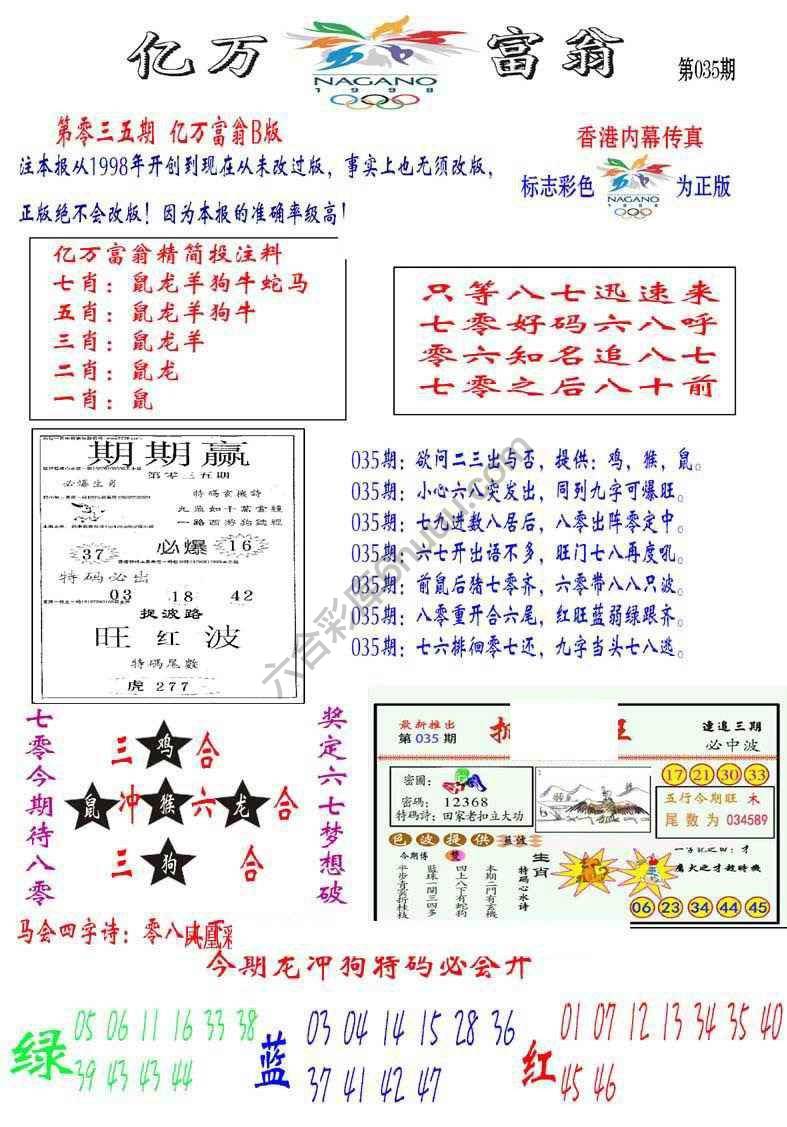 亿万富翁
NAGANO
1998
第035期
第零三五期 亿万富翁B版
注本报从1998年开创到现在从未改过版，事实上也无须改版，
正版绝不会改版！因为本报的准确率级高！
香港内幕传真
标志彩色
NAGANO
为正版
亿万富翁精简投注料
七肖：鼠龙羊狗牛蛇马
五肖：鼠龙羊狗牛
三肖：鼠龙羊
二肖：鼠龙
一肖：鼠
只等八七迅速来
七零好码六八呼
零六知名追八七
七零之后八十前
期期赢
第零三五期
必爆生肖
特碼玄機詩
必爆
37
16
特码必出
03 18 42
捉波路
旺红波
特碼尾數
虎277
035期：欲问二三出与否，提供：鸡，猴，鼠。
035期：小心六八突发出，同列九字可爆旺。
035期：七九进数八居后，八零出阵零定中。
035期：六七开出语不多，旺门七八再度吼。
035期：前鼠后猪七零齐，六零带八八只波。
035期：八零重开合六尾，红旺蓝弱绿跟齐。
035期：七六排徊零七还，九字当头七八逃。
六合彩库6huku.com
七零今期待八零
三鸡合
鼠冲猴六龙合
三狗合
奖定六七梦想破
最新推出
第035期
速追三期
必中波
密圖：
密碼：12368
特碼詩：田家老扣立大功
17 21 30 33
五行今期旺 木
尾数为 034589
色波提供
今期博
半步青雲折桂枝
藍珠一開三四多
四上八下有蛇狗
本期二門有玄機
特码心水诗
生肖
鷹犬之才趁時機
06 23 34 44 45
马会四字诗：零八
今期龙冲狗特码必会开
绿
05 06 11 16 33 38
39 43 43 44
蓝
03 04 14 15 28 36
37 41 42 47
红
01 07 12 13 34 35 40
45 46